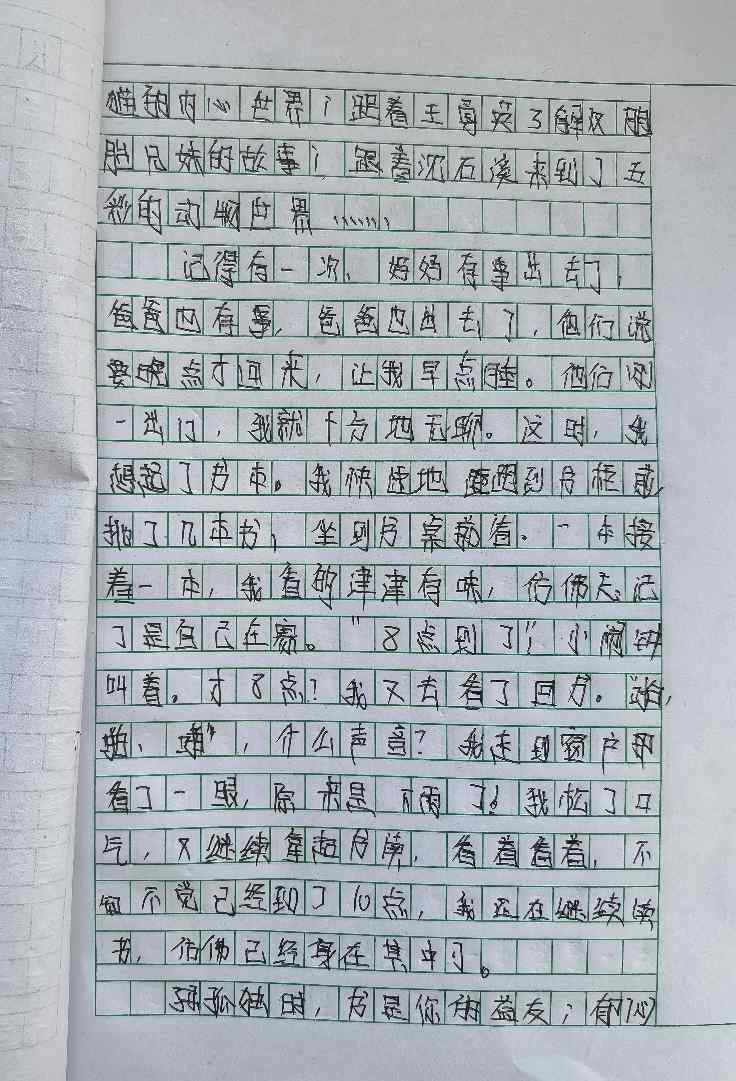 猫的内心世界；跟着王勇英了解双胞
胎兄妹的故事；跟着沈石溪来到了五
彩的动物世界……
记得有一次，妈妈有事出去了，
爸爸也有事，爸爸也出去了，他们说
要晚点才回来，让我早点睡。他们刚
一出门，我就十分地无聊。这时，我
想起了书本。我快速地跑到书柜前
挑了几本书，坐到书桌前看。一本接
着一本，我看的津津有味，仿佛忘记
了是自己在家。“8点到了”小闹钟
叫着。才8点？我又去看了回书。“啪，
啪，啪”，什么声音？我走到窗户那
看了一眼，原来是下雨了！我松了口
气，又继续拿起书读，看着看着，不
知不觉已经到了10点，我还在继续读
书，仿佛已经身在其中了。
孤独时，书是你的益友；有